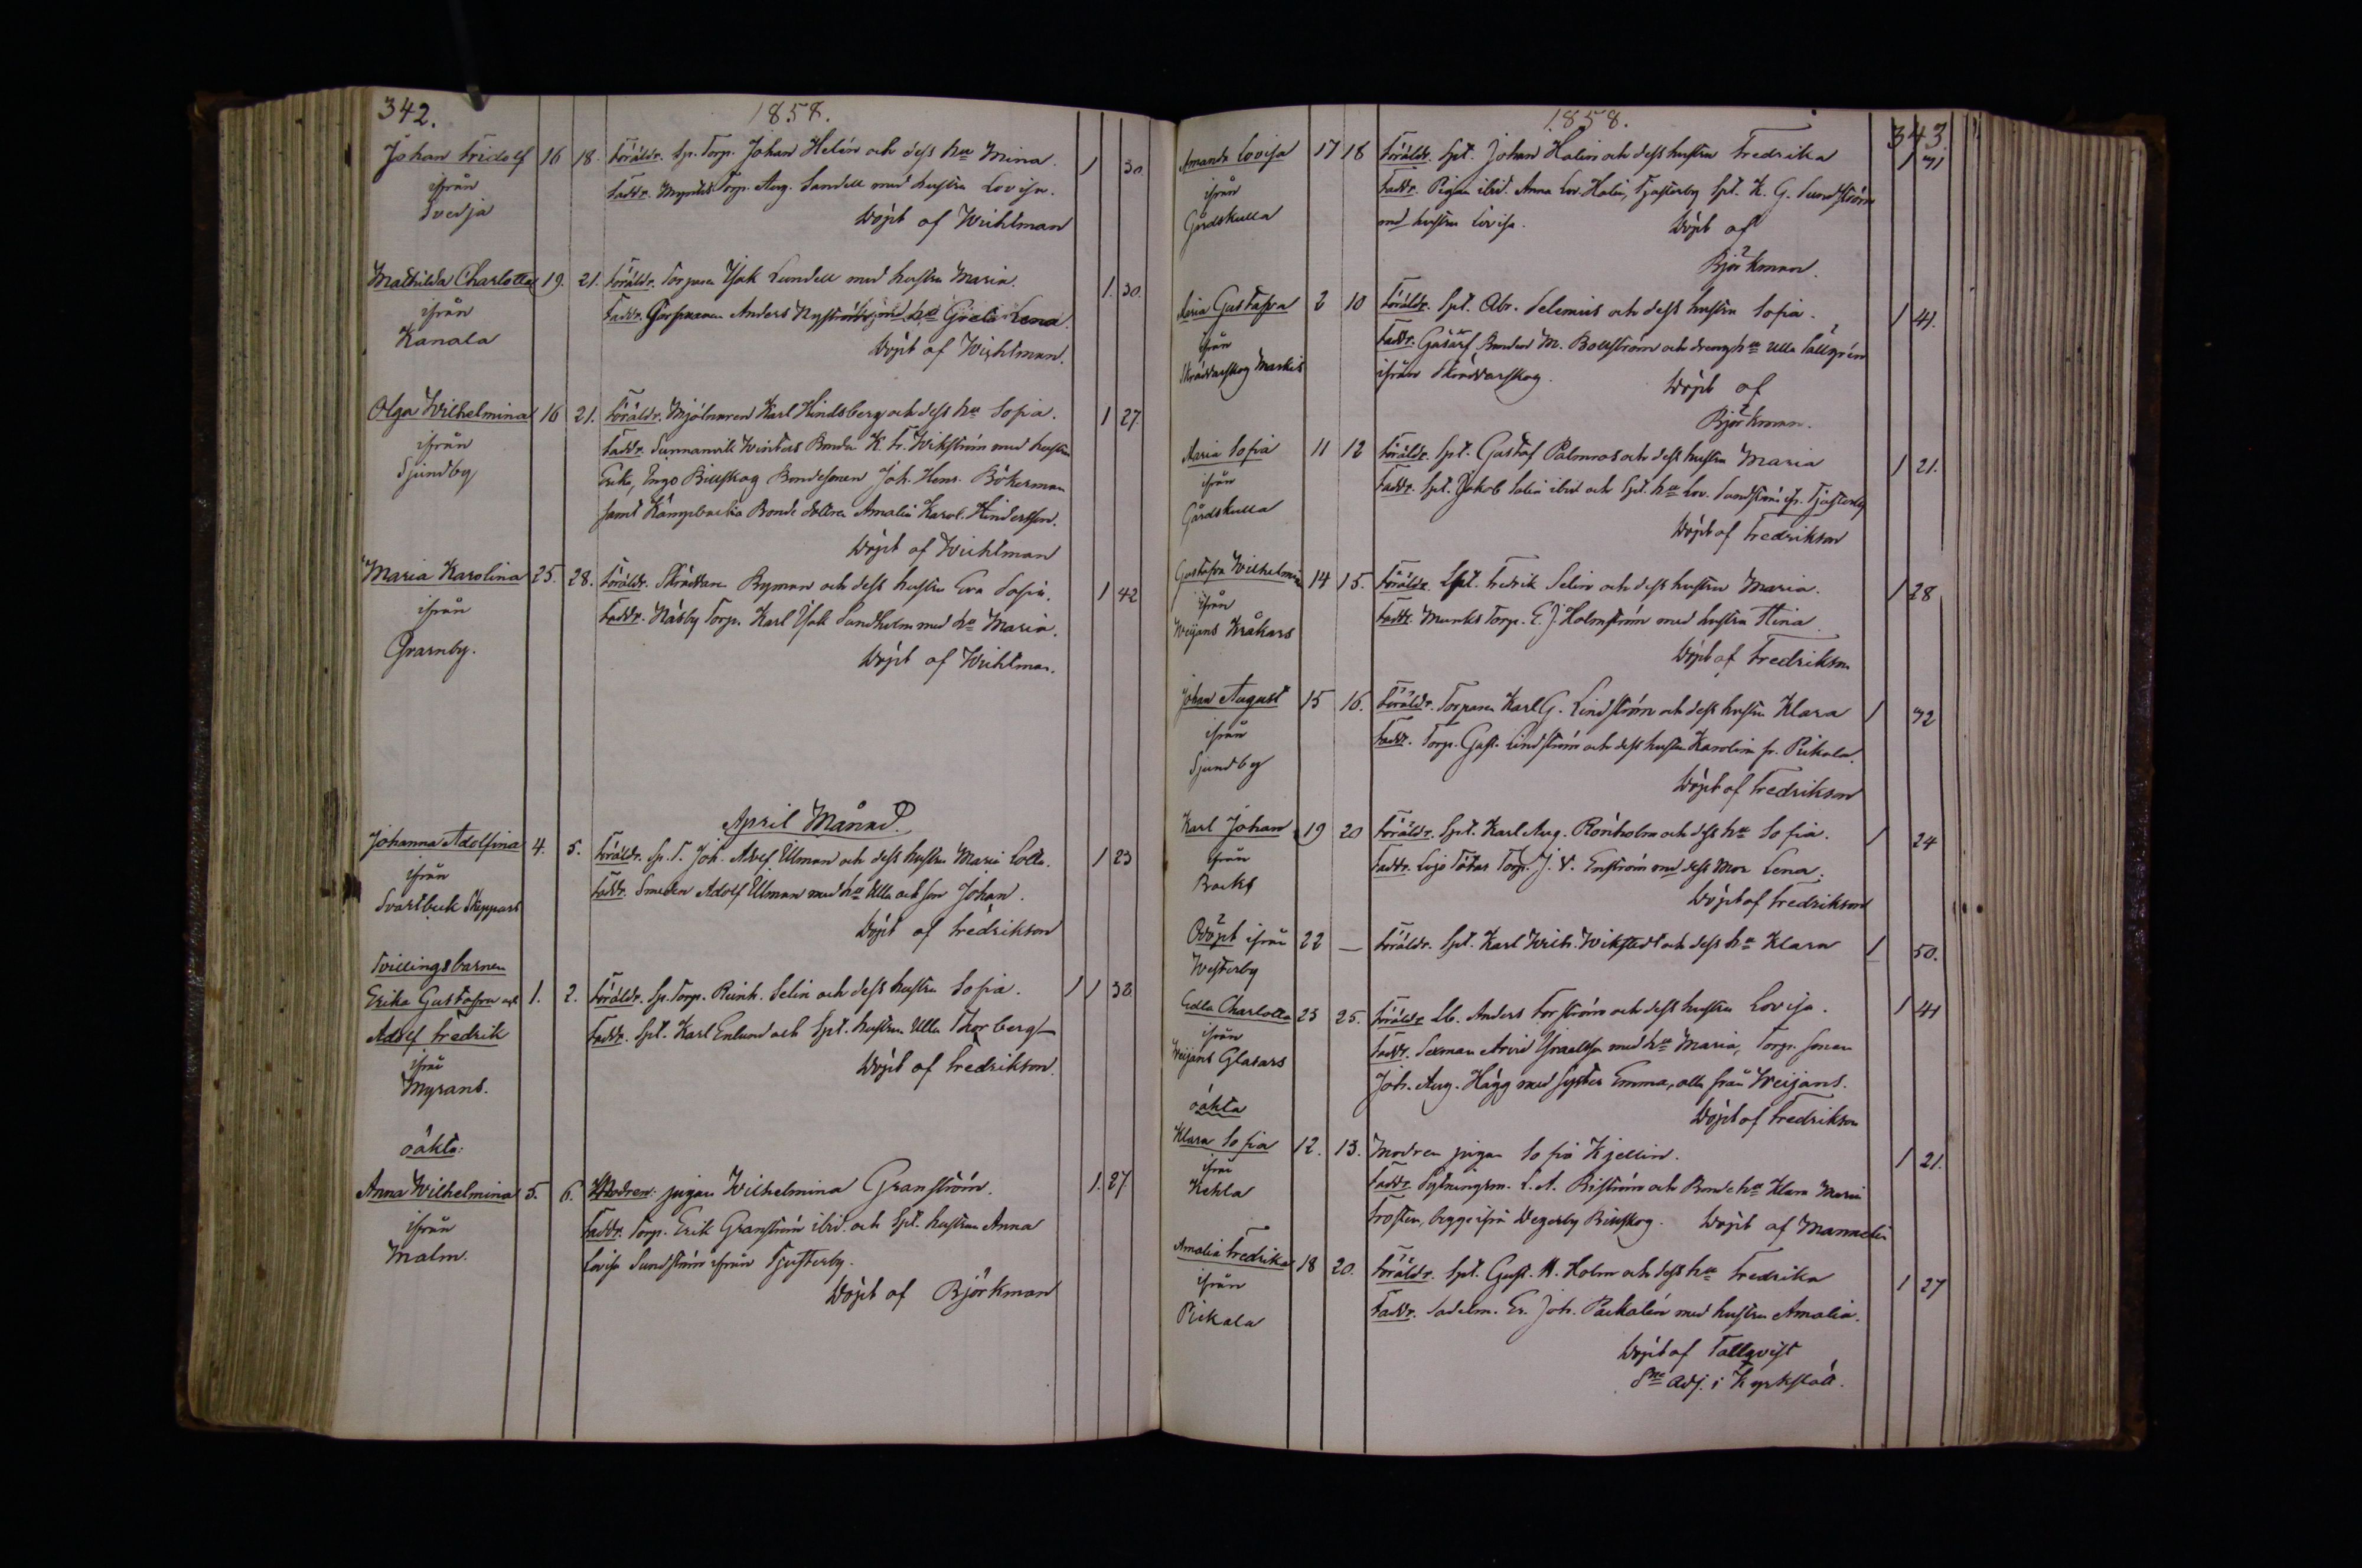 342.
1858.
Johan Fridolf 16 18. Föräldr. Sp. Torp. Johan Helén och dess hu Mina. 1 30.
ifrån Faddr. Torp. Aug. Sandell med hustru Lovisa.
Svedja
Döpt af Wichtman
Mathilda Charlotta 19. 21. Föräldr. Torparen Isak Lundell med hustru Maria. 1. 30.
ifrån Faddr. Torparen Anders Nyström med hu Greta Lena.
Kanala
Döpt af Wichtman.
Olga Wilhelmina 16 21. Föräldr. Mjölnaren Karl Hindsberg och dess hu Sofia. 1 27.
ifrån Faddr. Sunnanvik Winters Bonden K. Fr. Wikström med hustru
Sjundby Ingo Billskog Bondesonen Joh. Henr. Bökerman
samt Kämpbacka Bonde dottren Amalia Karol. Hindersson.
Döpt af Wichtman
Maria Karolina 25. 28. Föräldr. Skräddaren Ryman och dess hustru Eva Sofia. 1 42
ifrån Faddr. Näsby Torp. Karl Isak Sundholm med hu Maria.
Grarnby.
Döpt af Wichtman.
April Månad.
Johanna Adolfina 4. 5. Föräldr. Sp. T. Joh. Adolf Ellman och dess hustru Maria Lotta. 1 23
ifrån Faddr. Smeden Adolf Ellman med hu Ulla och son Johan.
Svartbäck Skeppars
Döpt af Fredrikson
Tvillingsbarnen
Erika Gustafva och 1. 2. Föräldr. Sp. Torp. Reinh. Selin och dess hustru Sofia. 1 1 38
Adolf Fredrik Faddr. Spt. Karl Enlund och Spt. hustrun Ulla Thorberg
ifrån
Myrans.
Döpt af Fredrikson.
oäkta:
Anna Wilhelmina 5. 6. Modren: pigan Wilhelmina Granström. 1. 27.
ifrån Faddr. Torp. Erik Granström ibid. och Spt. hustrun Anna
Malm. Lovisa Sundström ifrån Tjusterby.
Döpt af Björkman
343.
1858.
Amanda Lovisa 17 18 Föräldr. Spt. Johan Halin och dess hustru Fredrika 1
ifrån Faddr. Pigan ibid. Anna Lov. Halin, Tjusterby Spt. K. G. Sundström
Gårdskulla med hustru Lovisa. Döpt af
Björkman.
Maria Gustafva 2 10 Föräldr. Spt. Abr. Selenius och dess hustru Sofia. 1 41.
ifrån Faddr. Gåsarf Bonden M. Bollström och dreng hu Ulla Tallgrén
Skräddarskog Markis ifrån Skräddarskog. Döpt af
Björkman.
Maria Sofia 11 12 Föräldr. Spt. Gustaf Palmroos och dess hustru Maria 1 21.
ifrån Faddr. Spt. Jakob Salin ibid och Spt. hu Lov. Sundström ifr. Tjusterby
Gårdskulla
Döpt af Fredrikson
Gustafva Wilhelmina 14 15. Föräldr. Spt. Fredrik Selin och dess hustru Maria. 1 28
ifrån Faddr. Munks Torp. E. J. Holmström med hustru Stina
Weijans Kråkars
Döpt af Fredrikson
Johan August 15 16. Föräldr. Torparen Karl G. Lindström och dess hustru Klara 1 32
ifrån Faddr. Torp. Gust. Lindström och dess hustru Karolina fr. Pikala.
Sjundby
Döpt af Fredrikson
Karl Johan 19 20 Föräldr. Spt. Karl Aug. Rönholm och dess hu Sofia. 1 24
ifrån Faddr. Lojo Torp. J. V. Enström med dess Mor Lena.
Backs
Döpt af Fredrikson
Odöpt ifrån 22 — Föräldr. Spt. Karl Wilh. Wikstedt och dess hu Klara 1 50.
Westerby
Edla Charlotta 23 25. Föräldr. Anders Forström och dess hustru Lovisa. 1 41
ifrån Faddr. Sexman Arvid Israelsson med hu Maria, Torp. sonen
Weijans Glasars Joh. Aug. Hägg med syster Emma, alla från Weijans.
Döpt af Fredrikson
oäkta
Klara Sofia 12. 13. Modren pigan Sofia Kjellin. 1 21.
ifrån Faddr. Sytningsm. Riström och Bonde hu Klara Maria
Kehla begge ifrån Degerby Billskog. Döpt af Mannelin
Amalia Fredrika 18 20. Föräldr. Spt. Gust. A. Holm och dess hu Fredrika 1 27
ifrån Faddr. Sadelm. Er. Joh. Packalén med hustru Amalia.
Pikala
Döpt af Tallqvist
Adj. i Kyrkslätt.